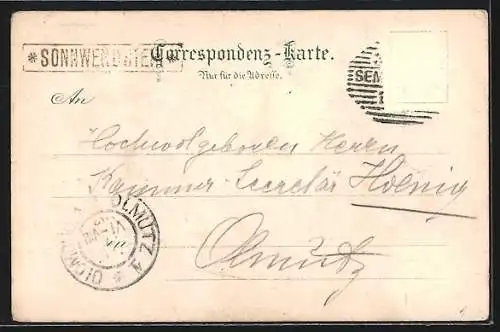 * SONNWENDSTEIN *
Correspondenz-Karte.
Nur für die Adresse.
SEM
An
Hochwolgeboren Herrn
Kammer-Secretär Hoenig
Olmütz
OLMÜTZ 4 * OLOM